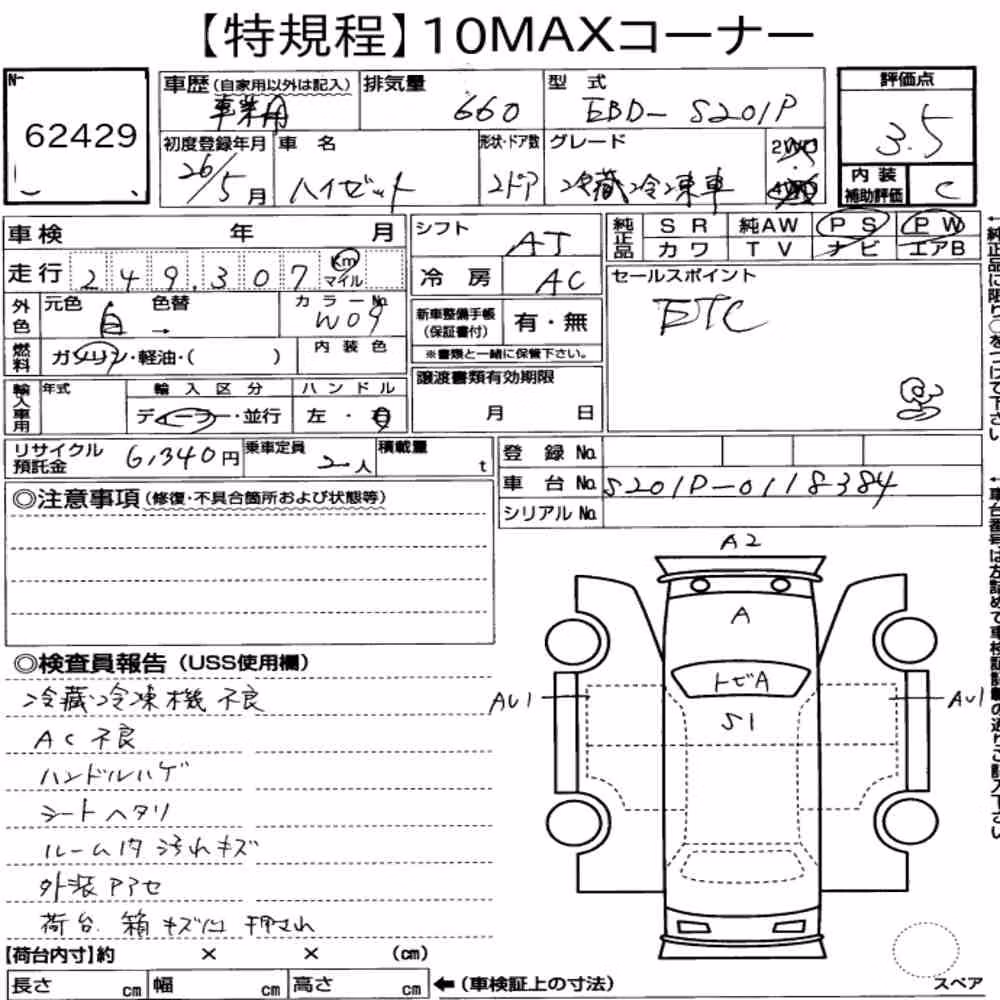 【特規程】10MAXコーナー
No
62429
車歴(自家用以外は記入) 事業用
排気量 660
型式 EBD-S201P
評価点 3.5
初度登録年月 26/5月
車名 ハイゼット
形状・ドア数 2ドア
グレード 冷蔵冷凍車
2WD
4WD
内装補助評価 C
車検 年 月
シフト AT
純正品 SR 純AW PS PW
カワ TV ナビ エアB
走行 249,307 km マイル
冷房 AC
セールスポイント
ETC
外色 元色 白 → 色替 カラーNo. W09
新車整備手帳(保証書付) 有・無
※書類と一緒に保管下さい。
燃料 ガソリン・軽油・( )
内装色
譲渡書類有効期限
月 日
輸入車用 年式 輸入区分 ハンドル
ディーラー・並行 左・右
リサイクル預託金 6,340円
乗車定員 2人
積載量 t
登録No.
車台No. S201P-0118384
シリアルNo.
◎注意事項(修復・不具合箇所および状態等)
◎検査員報告(USS使用欄)
冷蔵冷凍機不良
AC不良
ハンドルハゲ
シートヘタリ
ルーム内汚れキズ
外装アアセ
荷台.箱キズ凹押され
A2
A
トビA
S1
AU1
AU1
【荷台内寸】約 × × (cm)
長さ cm 幅 cm 高さ cm
←(車検証上の寸法)
スペア
←純正品に限り○をつけて下さい
←車台番号は左詰めで車検証記載の通りご記入下さい